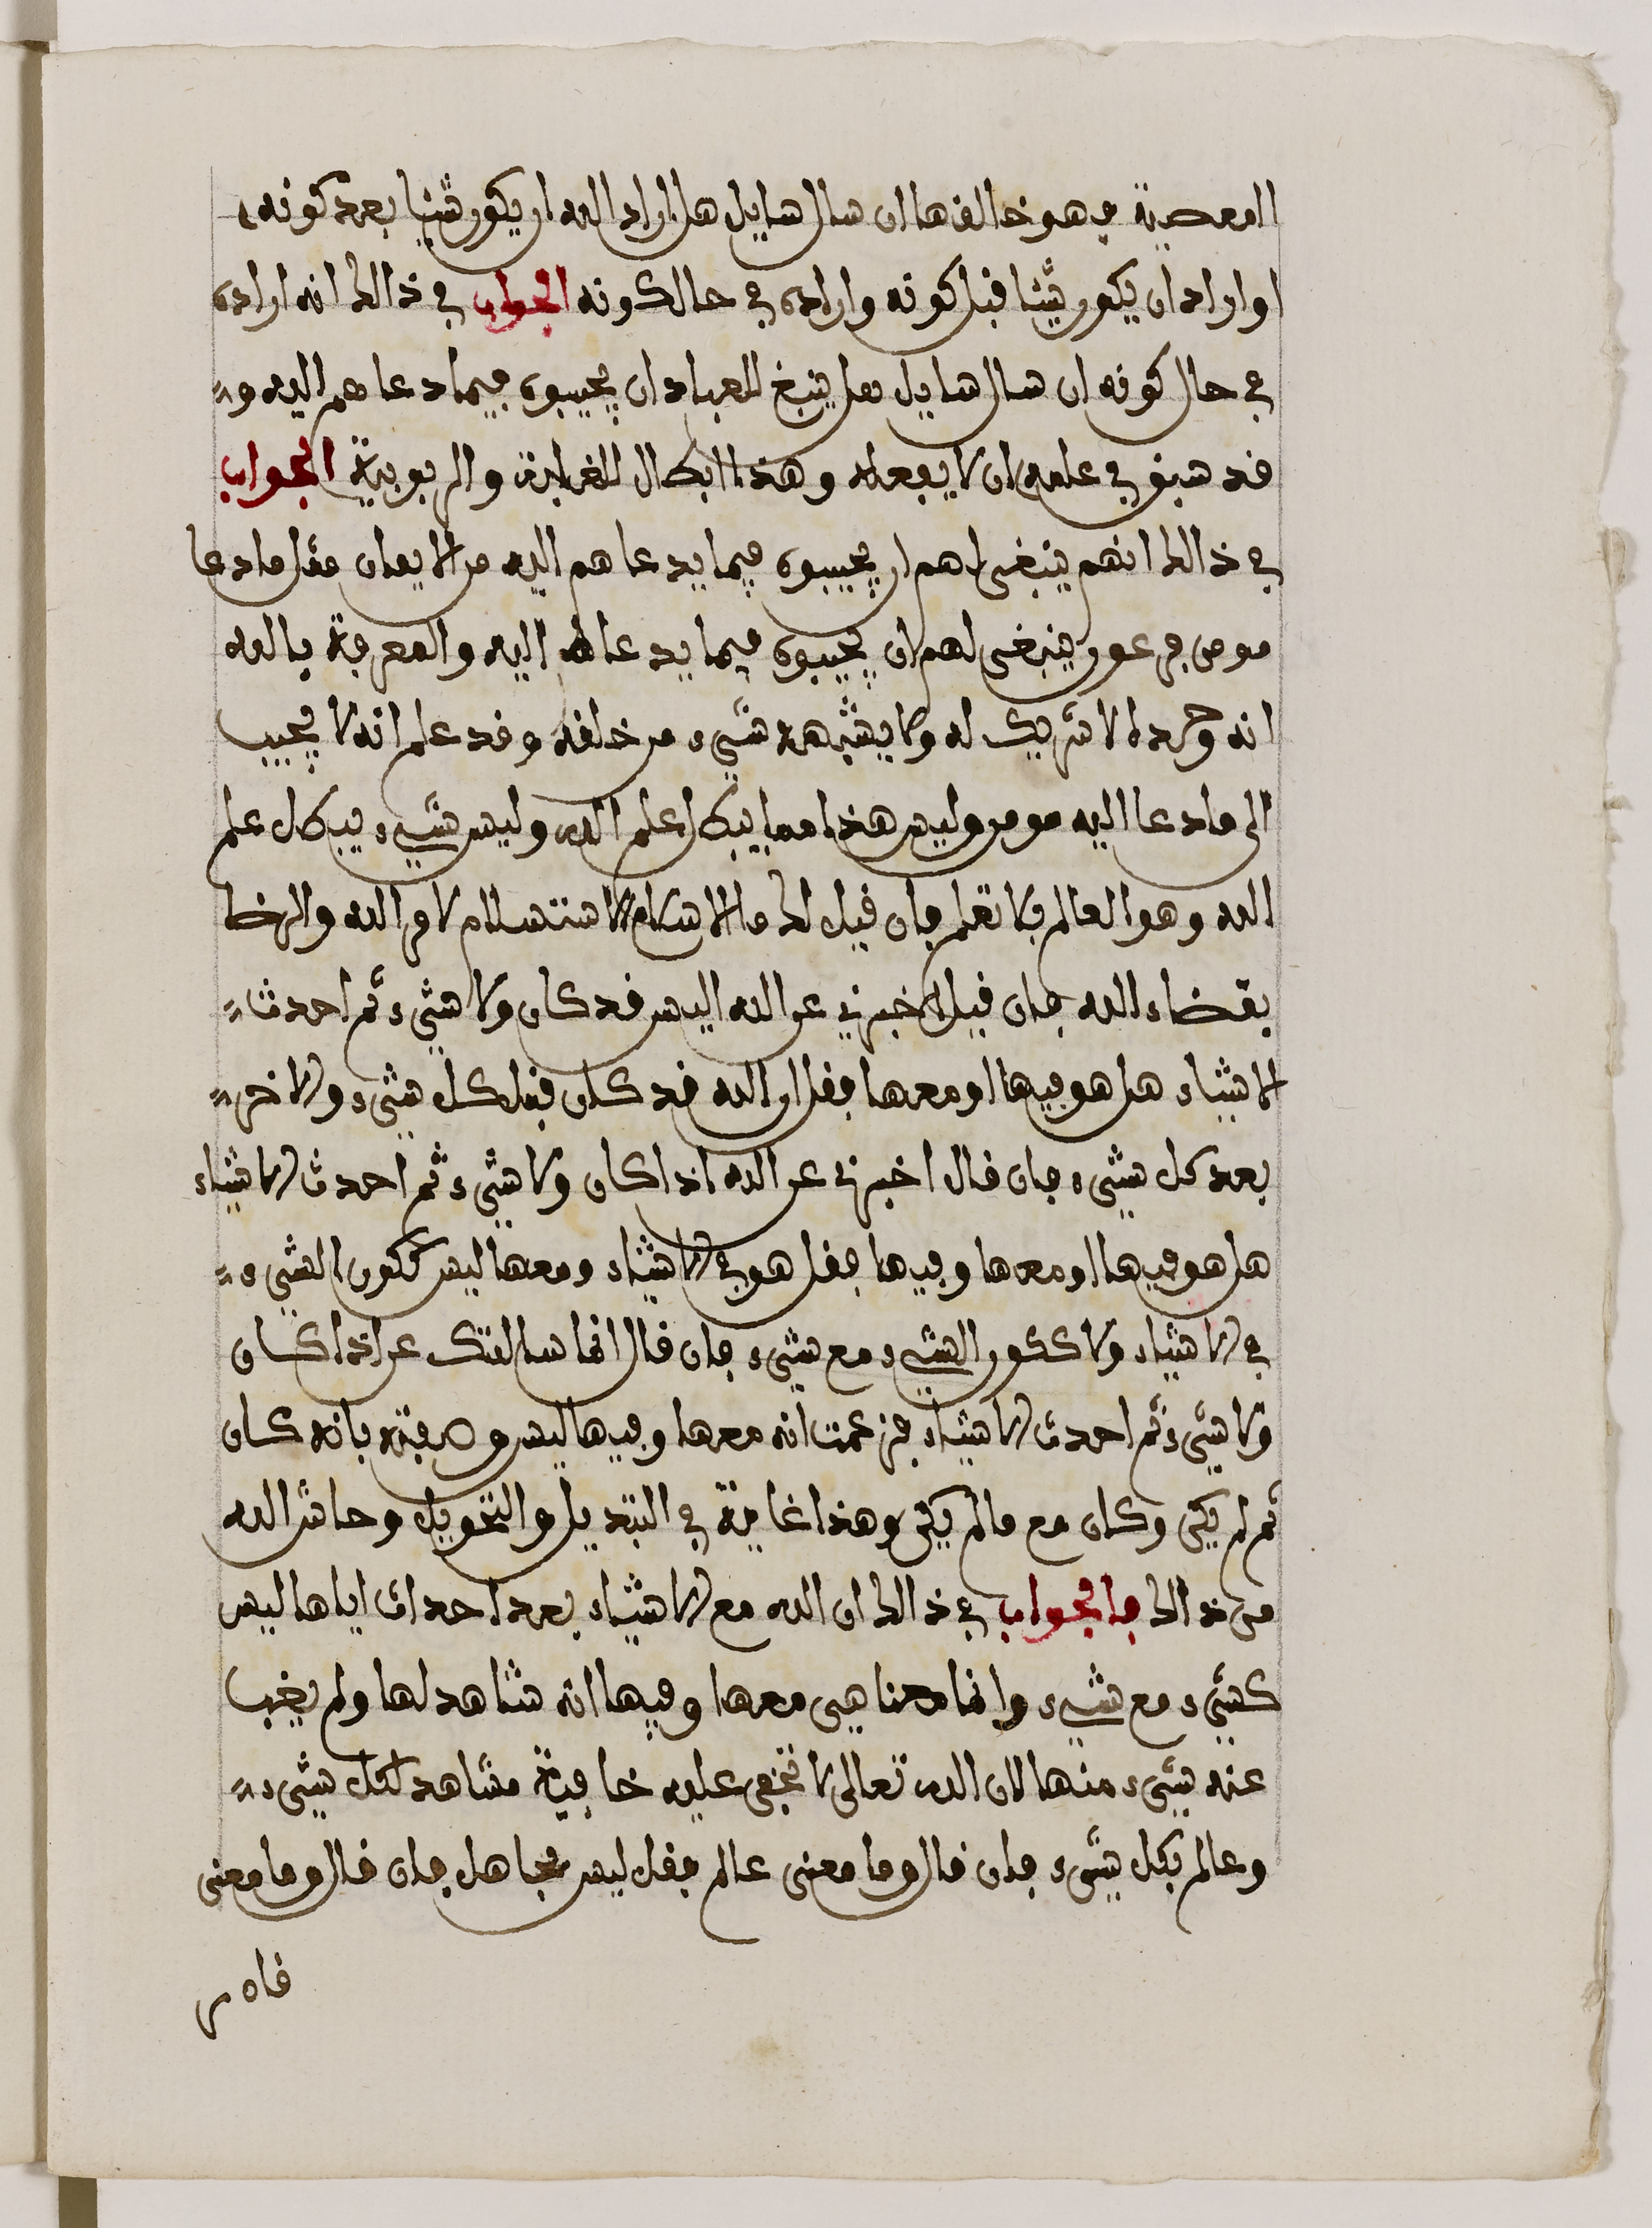 المعصية فهو خالفها ان سال سايل هل اراد الله ان يكون شيا بعد كونه
او اراد ان يكون شيئا قبل كونه واراده في حال كونه الجواب في ذالك انه اراده
في حال كونه ان سال سايل هل ينبغ للعباد ان يجيبوه فيما دعاهم اليه و
قد سبق في علمه ان لا يفعله وهذا ابطال للغراية والربوبية الجواب
في ذالك انهم ينبغي لهم ان يجيبوه فيما يدعاهم اليه من الايمان مثل ما دعا
موسى فرعون ينبغي لهم ان يجيبوه فيما يدعا له اليه والمعرفة بالله
انه وحده لا شريك له ولا يشبهه شيء من خلقه وقد علم انه لا يجيب
الى ما دعا اليه مومن وليس هذا مما يبطل علم الله وليس شيء يبطل علم
الله وهو العالم فلا تعلم فان قيل لك ما الاسلام الاستسلام لامر الله والرضا
بقضاء الله فان قيل اخبرني عن الله اليس قد كان ولا شيء ثم احدث
الاشياء هل هو فيها او معها فقل ان الله قد كان قبل كل شيء والاخر
بعد كل شيء فان قال اخبرني عن الله اذا كان ولا شيء ثم احدث الاشياء
هل هو فيها او معها وفيها فقل هو في الاشياء ومعها ليس ككون الشيء
في الاشياء ولا ككون الشيء مع شيء فان قال انما سالتك عن اذا كان
ولا شيء ثم احدث الاشياء فزعمت انه معها وفيها ليس وصفته بانه كان
ثم لم يكن وكان مع ما لم يكن وهذا غاية في التبديل والتحويل وحاش الله
من ذالك فالجواب في ذالك ان الله مع الاشياء بعد احداث اياها ليس
كشيء مع شيء وانما معنا هي معها وفيها انه شاهد لها ولم يغب
عنه شيء منها لان الله تعالى لا تخفى عليه خافية مشاهد لكل شيء
وعالم بكل شيء فان قال وما معنى عالم فقل ليس بجاهل فان قال وما معنى
قاهر